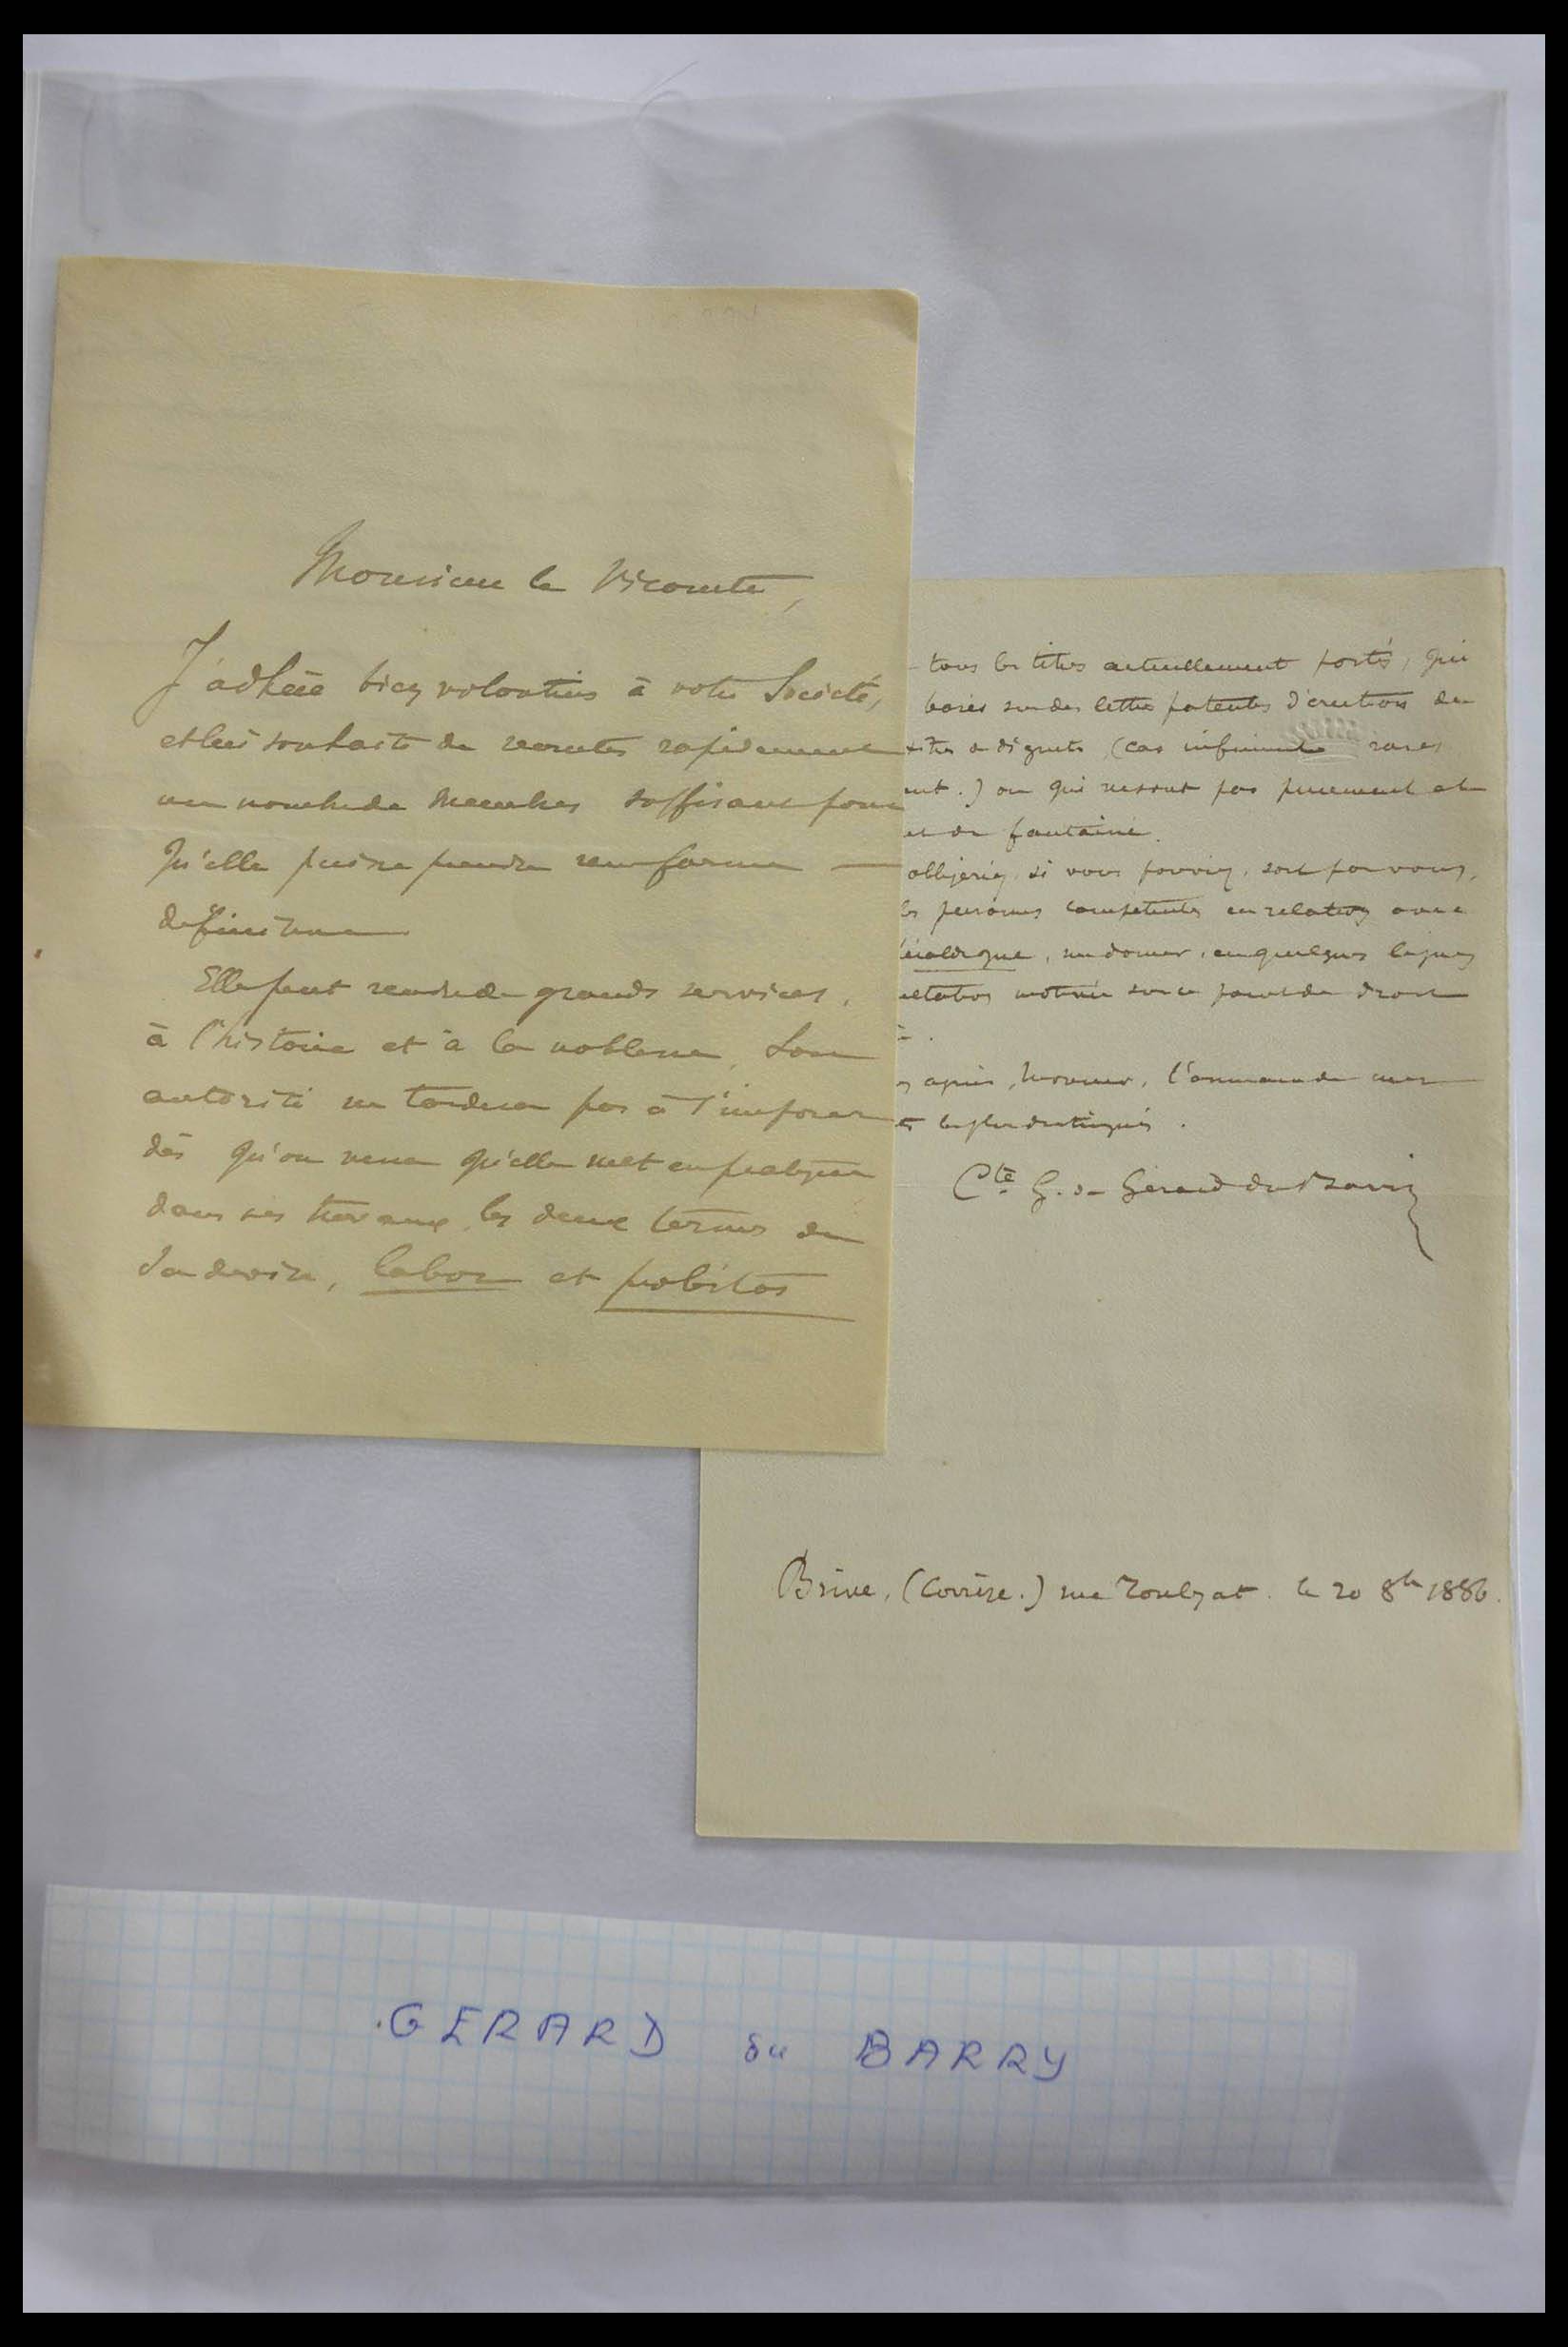 Monsieur le Vicomte,
J'adhère bien volontiers à votre Société,
et lui souhaite de recruter rapidement
un nombre de membres suffisant pour
qu'elle puisse prendre une forme
définitive.
Elle peut rendre de grands services,
à l'histoire et à la noblesse, Son
autorité ne tardera pas à s'imposer
dès qu'on verra qu'elle met en pratique
dans ses travaux, les deux termes de
sa devise, labor et probitas
tous les titres actuellement portés, qui
basés sur des lettres patentes d'érection de
titres de dignité, (cas infiniment rares
.) ou qui ne sont pas purement et
de fantaisie.
obligeriez, si vous pouviez, soit par vous,
les personnes compétentes en relation avec
héraldique, me donner, en quelques lignes
motivée sur ce point de droit
agréer, Monsieur, l'assurance de mes
les plus distingués.
Cte G. de Gérard du Barry
Brive, (Corrèze.) rue Toulzat. le 20 8bre 1886.
GERARD du BARRY